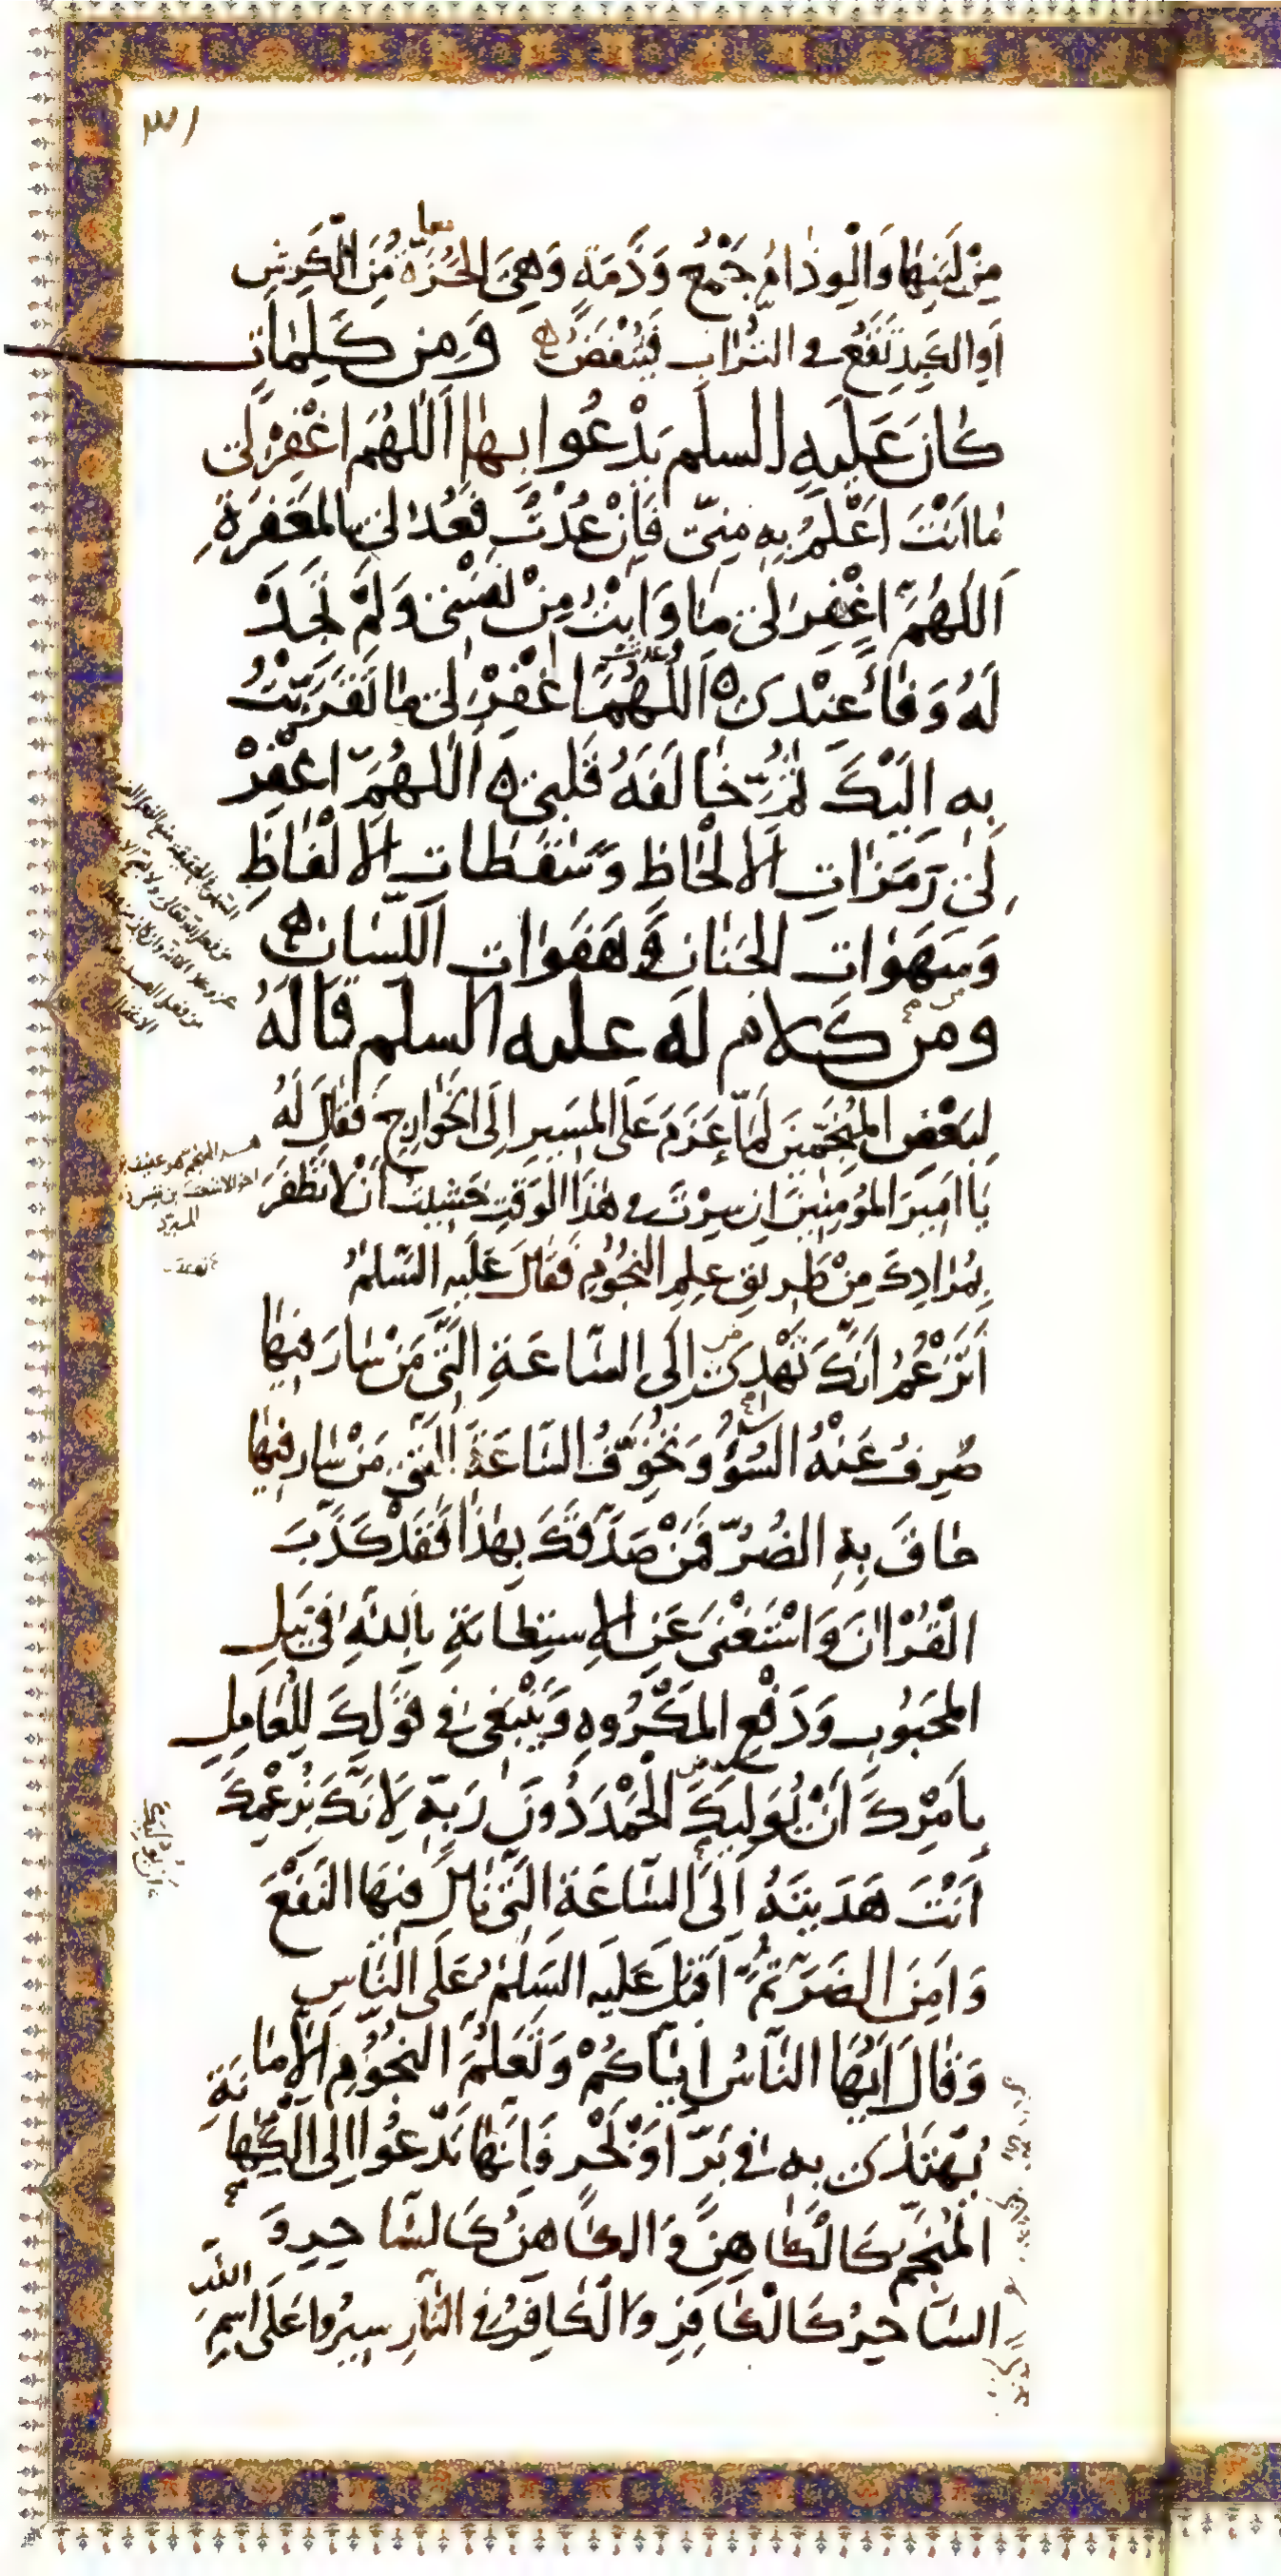 ٣١
مِنْ لَبَنِهَا وَالْوِذَامُ جَمْعُ وَذَمَةٍ وَهِيَ الْحُزَّةُ مِنَ الْكَرِشِ
معا
اَوِ الكَبِدِ تَقَعُ فِي التُّرَابِ فَتُنْفَضُ ۞ وَمِنْ كَلِمَاتٍ
كَانَ عَلَيهِ السلم يَدْعُوا بِهَا اَللّٰهُمَّ اغْفِرْ لِى
مَا اَنْتَ اَعْلَمُ بِهِ مِنِّى فَاِنْ عُدْتُ فَعُدْ لِى بِالمَغْفِرَةِ
اَللّٰهُمَّ اغْفِرْ لِى مَا وَاَيْتُ مِنْ نَفْسِى وَلَمْ تَجِدْ
لَهُ وَفَاءً عِنْدِى ه اَللّٰهُمَّ اغْفِرْ لِى مَا تَقَرَّبْتُ
بِهِ اِلَيْكَ ثُمَّ خَالَفَهُ قَلْبِى ه اَللّٰهُمَّ اغْفِرْ
لِى رَمَزَاتِ الاَلْحَاظِ وَسَقَطَاتِ الاَلْفَاظِ
وَسَهَوَاتِ الجَنَانِ وَهَفَوَاتِ اللِّسَانِ ۞
ومن كَلام لَهُ عليه السلم قَالَهُ
لِبَعْضِ المُنَجِّمِينَ لَمَّا عَزَمَ عَلَى المَسِيرِ اِلَى الخَوَارِجِ فَقَالَ لَهُ
يَا اَمِيرَ المُؤمِنِينَ اِنْ سِرْتَ فِي هٰذَا الوَقتِ خَشِيتُ اَنْ لَا تَظْفَرَ
بِمُرَادِكَ مِنْ طَرِيقِ عِلمِ النُّجُومِ فَقَالَ عَلَيهِ السَّلمُ
اَتَزْعُمُ اَنَّكَ تَهْدِى اِلَى السَّاعَةِ الَّتِى مَنْ سَارَ فِيهَا
صُرِفَ عَنْهُ السُّوُ وَتُخَوِّفُ السَّاعَةَ الَّتِى مَنْ سَارَ فِيهَا
حَاقَ بِهِ الضُّرُّ فَمَنْ صَدَّقَكَ بِهٰذَا فَقَدْ كَذَّبَ
الْقُرْاٰنَ وَاسْتَغْنَى عَنِ الاِسْتِعَانَةِ بِاللّٰهِ فِى نَيلِ
المَحبُوبِ وَدَفْعِ المَكْرُوهِ وَيَنْبَغِى فِى قَولِكَ لِلْعَامِلِ
بِاَمْرِكَ اَنْ يُولِيَكَ الْحَمْدَ دُونَ رَبِّهِ لِاَنَّكَ بِزَعْمِكَ
اَنْتَ هَدَيتَهُ اِلَى السَّاعَةِ الَّتِى نَالَ فِيهَا النَّفْعَ
وَاَمِنَ الضَّرَّ ثُمَّ اَقبَلَ عَلَيهِ السَّلمُ عَلَى النَّاسِ
وَقَالَ اَيُّهَا النَّاسُ اِيَّاكُمْ وَتَعَلُّمَ النُّجُومِ اِلَّا مَا
يُهْتَدٰى بِهِ فِى بَرٍّ اَوْ بَحْرٍ فَاِنَّهَا تَدْعُوا اِلَى الكِهَانَةِ
المُنَجِّمُ كَالْكَاهِنِ وَالكَاهِنُ كَالسَّاحِرِ وَ
السَّاحِرُ كَالْكَافِرِ وَالْكَافِرُ فِي النَّارِ سِيرُوا عَلَى اسمِ اللّٰهِ